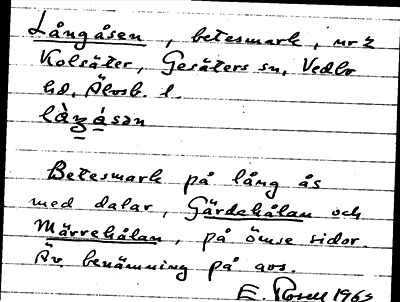 Långåsen, betesmark, nr 2
Kolsäter, Gesäters sn, Vedbo
hd, Älvsb. l.
Betesmark på lång ås
med dalar, Gärdehålan och
Märrehålan, på ömse sidor.
Äv benämning på avs.
E. Rosell 1963